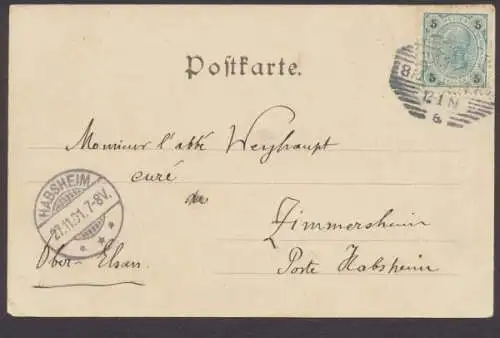 5 5
5 5
Postkarte.
12-1 N
6
Monsieur l'abbé Weyhaupt
curé
de
Zimmersheim
Poste Habsheim
Ober-Elsass.
HABSHEIM
27.11.01.7-8V.